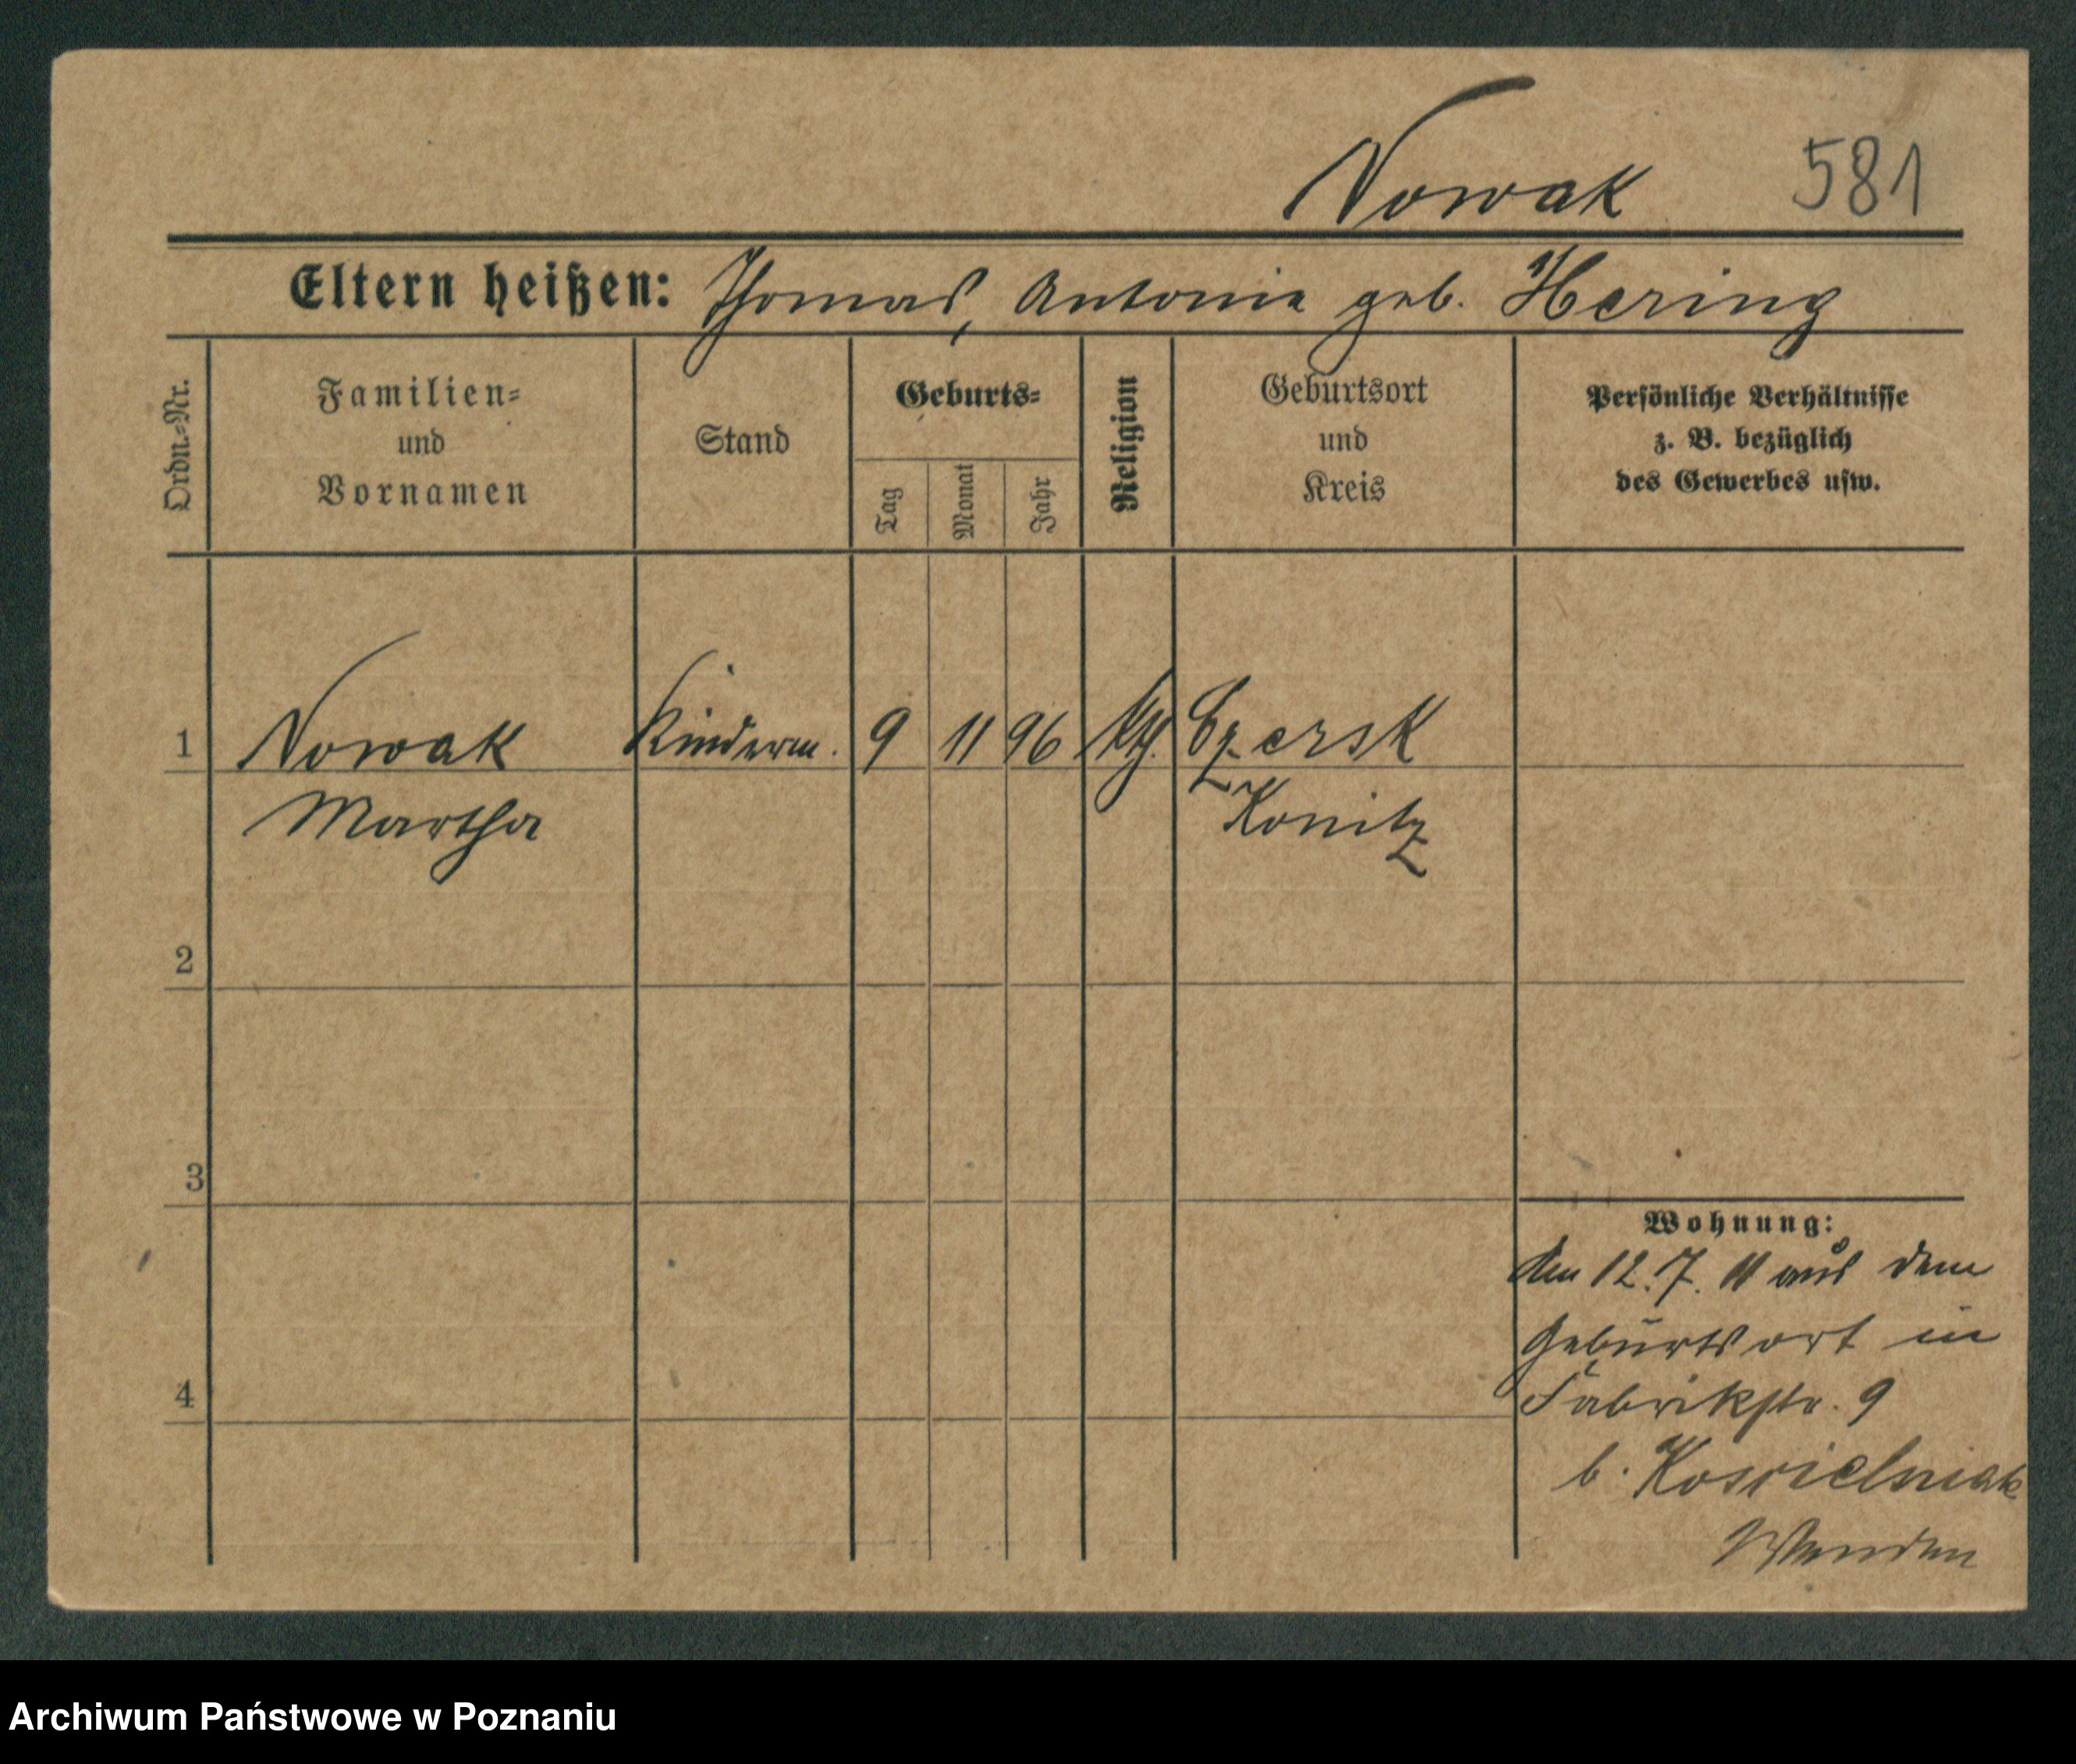 Nowak 581
Eltern heißen: Thomas, Antonie geb. Hering
Ordn.-Nr.
Familien-
und
Vornamen
Stand
Geburts-
Tag
Monat
Jahr
Religion
Geburtsort
und
Kreis
Persönliche Verhältnisse
z. B. bezüglich
des Gewerbes usw.
1 Nowak Kinderm. 9 11 96 kth. Czersk
Martha Konitz
2
3
4
Wohnung:
Am 12. 7. 11 aus dem
Geburtsort in
Fabrikstr. 9
b. Koscielniak
Archiwum Państwowe w Poznaniu